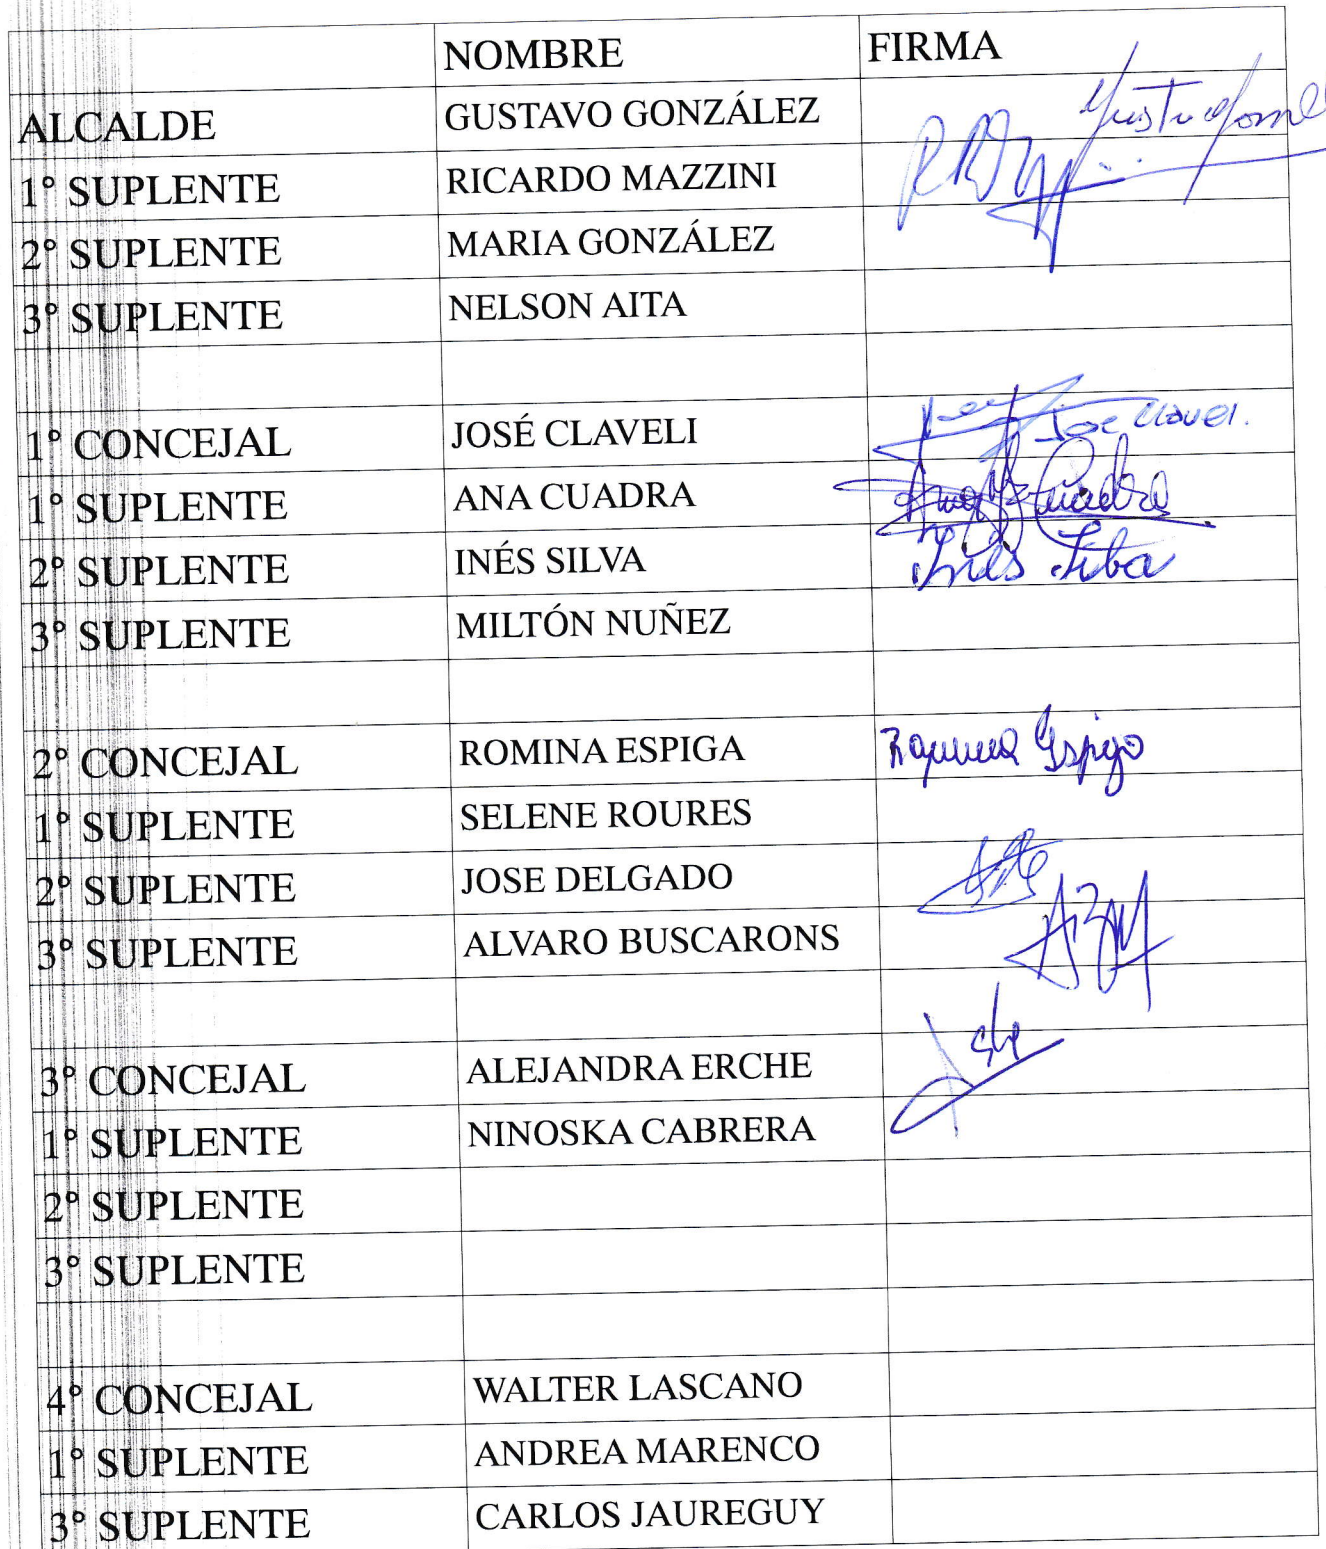 NOMBRE FIRMA
ALCALDE GUSTAVO GONZÁLEZ
1º SUPLENTE RICARDO MAZZINI
2º SUPLENTE MARIA GONZÁLEZ
3º SUPLENTE NELSON AITA
1º CONCEJAL JOSÉ CLAVELI Jose Clavel.
1º SUPLENTE ANA CUADRA Ana Cuadra
2º SUPLENTE INÉS SILVA Inés Silva
3º SUPLENTE MILTÓN NUÑEZ
2º CONCEJAL ROMINA ESPIGA Romina Espiga
1º SUPLENTE SELENE ROURES
2º SUPLENTE JOSE DELGADO
3º SUPLENTE ALVARO BUSCARONS
3º CONCEJAL ALEJANDRA ERCHE
1º SUPLENTE NINOSKA CABRERA
2º SUPLENTE
3º SUPLENTE
4º CONCEJAL WALTER LASCANO
1º SUPLENTE ANDREA MARENCO
3º SUPLENTE CARLOS JAUREGUY